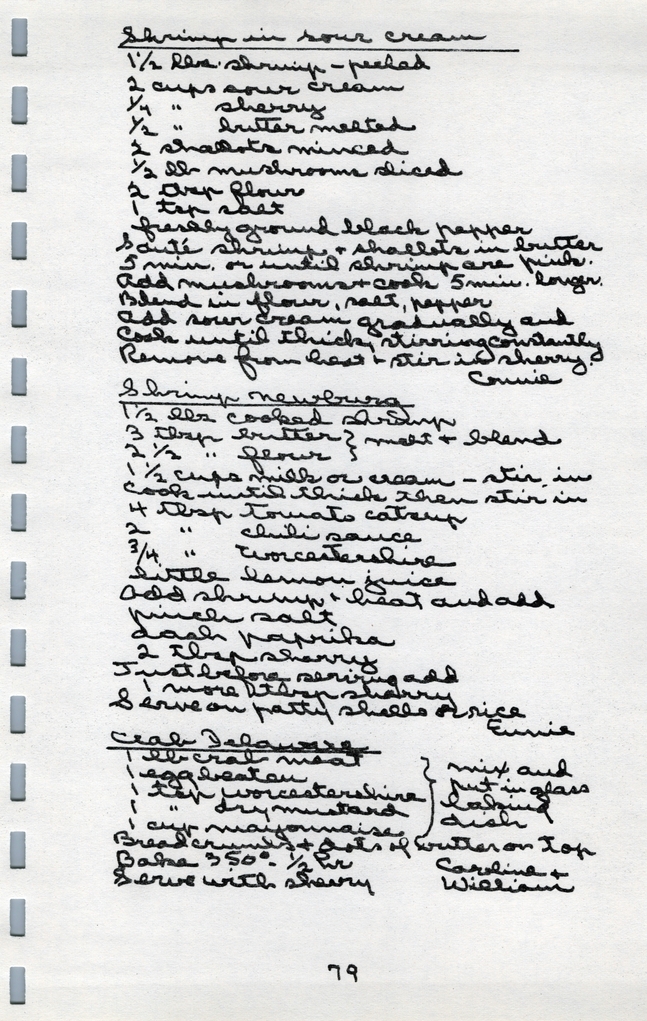 Shrimp in sour cream
1 1/2 lbs. shrimp - peeled
2 cups sour cream
1/4 " sherry
1/2 " butter melted
2 shallots minced
1/2 lb mushrooms sliced
2 tbsp flour
1 tsp salt
freshly ground black pepper
Sauté shrimp + shallots in butter
5 min. or until shrimp are pink.
Add mushrooms + cook 5 min. longer.
Blend in flour, salt, pepper
Add sour cream gradually and
Cook until thick, stirring constantly
Remove from heat + stir in sherry.
Connie
Shrimp Newburg
1 1/2 lbs cooked shrimp
3 tbsp butter } melt + blend
2 1/2 " flour }
1 1/2 cups milk or cream - stir in
Cook until thick then stir in
4 tbsp tomato catsup
2 " chili sauce
3/4 " Worcestershire
little lemon juice
Add shrimp + heat and add
pinch salt
dash paprika
2 tbsp sherry
Just before serving add
1 more tbsp sherry
Serve on patty shells or rice
Eunie
Crab Delaware
1 lb crab meat } mix and
1 egg beaten put in glass
1 tsp worcestershire baking
1 " dry mustard dish
1 cup mayonnaise
Breadcrumbs + dots of butter on top
Bake 350° - 1/2 hr
Serve with sherry
Caroline +
William
79